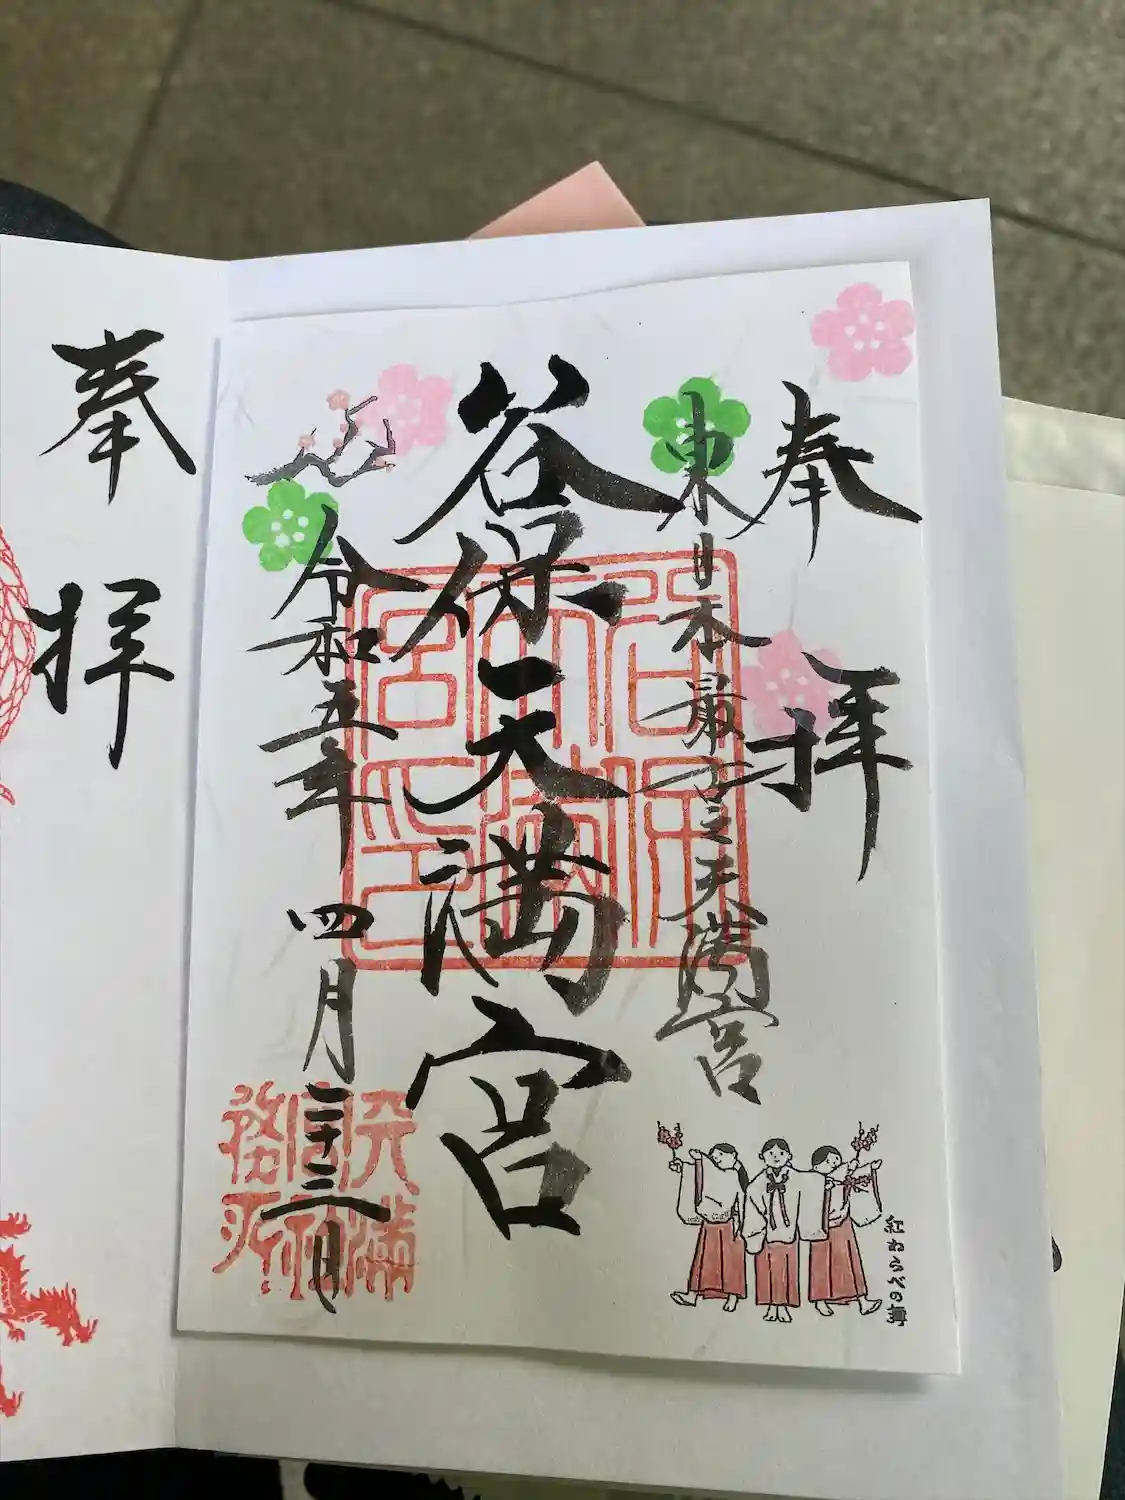 奉拝
東日本最古之天満宮
谷保天満宮
令和五年四月二十三日
紅わらべの舞
谷保天満宮印
天満宮社務所
奉拝